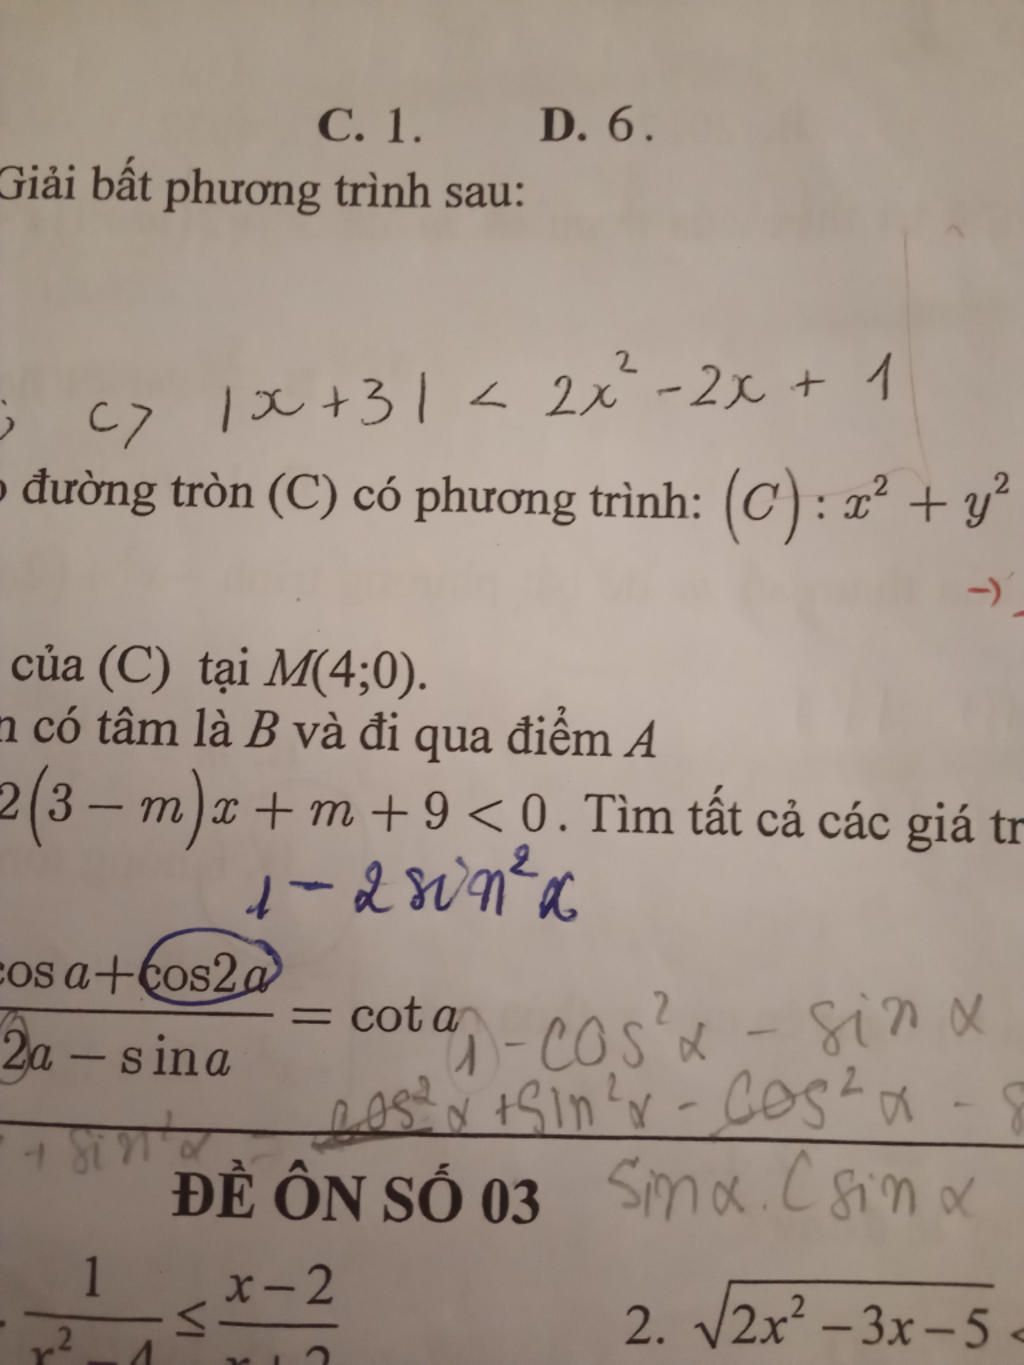 C. 1. D. 6.
Giải bất phương trình sau:
; c> |x + 3| < 2x² - 2x + 1
đường tròn (C) có phương trình: (C): x² + y²
của (C) tại M(4;0).
có tâm là B và đi qua điểm A
2(3 − m)x + m + 9 < 0. Tìm tất cả các giá tr
1 - 2 sin² x
cos a + cos2a
= cot a
2a − sin a
1 - cos²α - sin α
+ sin²α - cos²α + sin²α - cos²α -
ĐỀ ÔN SỐ 03
sin α. (sin α
1 ≤ x − 2
x² − 4 x + 2
2. √2x² − 3x − 5 <